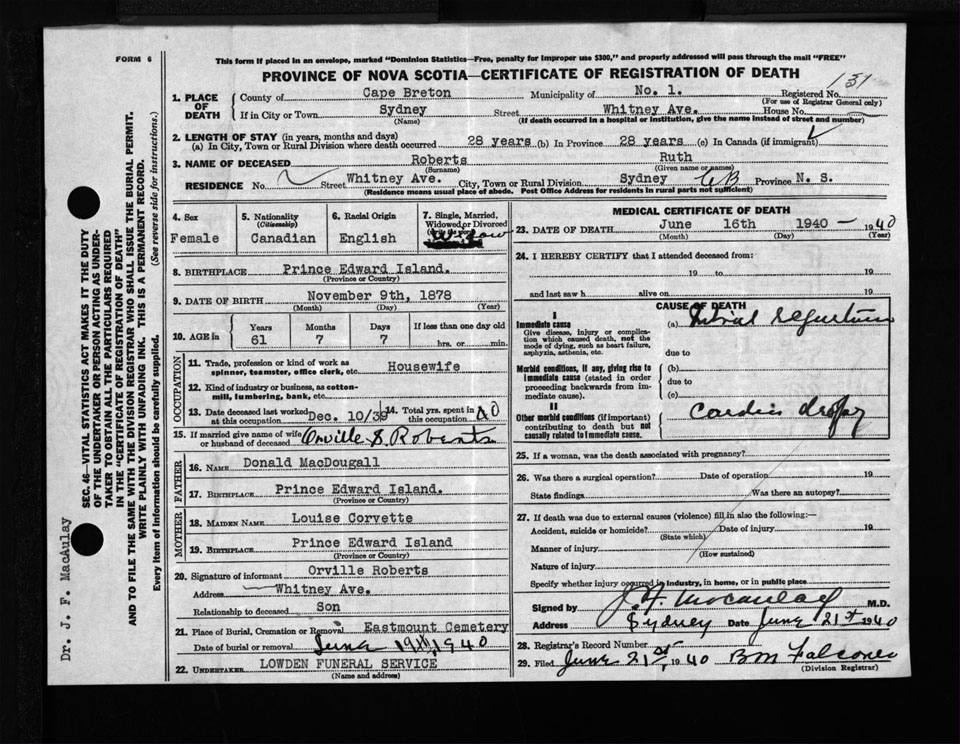 FORM 6
This form if placed in an envelope, marked "Dominion Statistics—Free, penalty for improper use $300," and properly addressed will pass through the mail "FREE"
PROVINCE OF NOVA SCOTIA—CERTIFICATE OF REGISTRATION OF DEATH
131
1. PLACE OF DEATH
County of Cape Breton Municipality of No. 1. Registered No.
(For use of Registrar General only)
If in City or Town Sydney Street Whitney Ave. House No.
(Name) (If death occurred in a hospital or institution, give the name instead of street and number)
2. LENGTH OF STAY (in years, months and days)
(a) In City, Town or Rural Division where death occurred 28 years (b) In Province 28 years (c) In Canada (if immigrant)
3. NAME OF DECEASED Roberts Ruth
(Surname) (Given name or names)
RESIDENCE No. Street Whitney Ave. City, Town or Rural Division Sydney CB Province N. S.
(Residence means usual place of abode. Post Office Address for residents in rural parts not sufficient)
4. Sex
Female
5. Nationality
(Citizenship)
Canadian
6. Racial Origin
English
7. Single, Married, Widowed or Divorced
Widow
8. BIRTHPLACE Prince Edward Island.
(Province or Country)
9. DATE OF BIRTH November 9th, 1878
(Month) (Day) (Year)
10. AGE in
Years Months Days If less than one day old
61 7 7 hrs. or min.
OCCUPATION
11. Trade, profession or kind of work as spinner, teamster, office clerk, etc. Housewife
12. Kind of industry or business, as cotton-mill, lumbering, bank, etc.
13. Date deceased last worked at this occupation Dec. 10/39
14. Total yrs. spent in this occupation 40
15. If married give name of wife or husband of deceased Orville S. Roberts
FATHER
16. NAME Donald MacDougall
17. BIRTHPLACE Prince Edward Island.
(Province or Country)
MOTHER
18. MAIDEN NAME Louise Corvette
19. BIRTHPLACE Prince Edward Island
(Province or Country)
20. Signature of informant Orville Roberts
Address Whitney Ave.
Relationship to deceased Son
21. Place of Burial, Cremation or Removal Eastmount Cemetery
Date of burial or removal June 1940
22. UNDERTAKER LOWDEN FUNERAL SERVICE
(Name and address)
MEDICAL CERTIFICATE OF DEATH
23. DATE OF DEATH June 16th 1940 – 1940
(Month) (Day) (Year)
24. I HEREBY CERTIFY that I attended deceased from:
19 to 19
and last saw h alive on 19
CAUSE OF DEATH
I
Immediate cause
Give disease, injury or complication which caused death, not the mode of dying, such as heart failure, asphyxia, asthenia, etc.
(a) Mitral regurtion
due to
Morbid conditions, if any, giving rise to immediate cause (stated in order proceeding backwards from immediate cause).
(b)
due to
(c)
II
Other morbid conditions (if important) contributing to death but not causally related to immediate cause.
Cardiac dropsy
25. If a woman, was the death associated with pregnancy?
26. Was there a surgical operation? Date of operation 19
State findings Was there an autopsy?
27. If death was due to external causes (violence) fill in also the following:—
Accident, suicide or homicide? Date of injury 19
(State which)
Manner of injury
(How sustained)
Nature of injury
Specify whether injury occurred in industry, in home, or in public place
Signed by J. F. Macaulay M.D.
Address Sydney Date June 21st 1940
28. Registrar's Record Number
29. Filed June 21st 1940 B M Falconer
(Division Registrar)
SEC. 46—VITAL STATISTICS ACT MAKES IT THE DUTY
OF THE UNDERTAKER OR PERSON ACTING AS UNDER-
TAKER TO OBTAIN ALL THE PARTICULARS REQUIRED
IN THE "CERTIFICATE OF REGISTRATION OF DEATH"
AND TO FILE THE SAME WITH THE DIVISION REGISTRAR WHO SHALL ISSUE THE BURIAL PERMIT.
WRITE PLAINLY WITH UNFADING INK. THIS IS A PERMANENT RECORD.
Every item of Information should be carefully supplied. (See reverse side for instructions.)
Dr. J. F. MacAulay